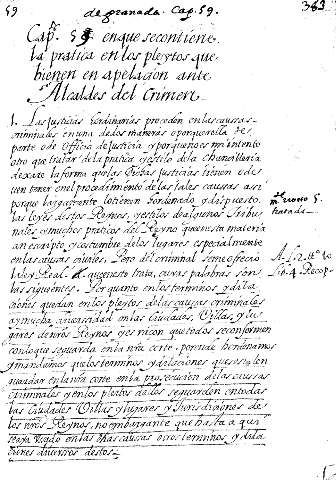 59 de granada. Cap. 59. 383
Cap. 59 en que se contiene
la pratica en los pleytos que
bienen en apelacion ante
Alcaldes del Crimen
1. Las Justicias hordinarias proceden en las causas
criminales en una de dos maneras o por querella de
parte o de officio de Justicia y porque no es mi intento
otro que tratar de la pratica y estilo de la chancilleria
dexare la forma que las dichas Justicias tienen o de
uen tener en el procedimiento de las tales causas asi
porque lo tienen hordenado y dispuesto
las leyes destos Reynos, y estilos de algunos tribu
nales y muchos praticos del Reyno que en esta materia
an escripto y costumbre de los lugares especialmente
en las causas ciuiles. Pero del criminal se me ofrecio
la ley Real que en esto trata, cuyas palabras son
las siguientes. Por quanto en los terminos y dila
ciones que dan en los pleytos de las causas criminales
ay mucha en las Ciudades, Villas, y lu
gares de nros Reynos y es raçon que todos se conformen
con lo que se guarda en la nra corte. por ende hordenamos
y mandamos que los terminos y dilaciones que se
guardan en la nra corte en la prosecucion de las causas
criminales y en los pleytos de los se guarden en todas
las Ciudades Villas y lugares y Jurisdiçiones de
los nros Reynos, no embargante que hasta aqui
aya vsado en las dhas causas otros terminos y dila
ciones diuersos destos
5.
tratado
lib. 4. Recop.